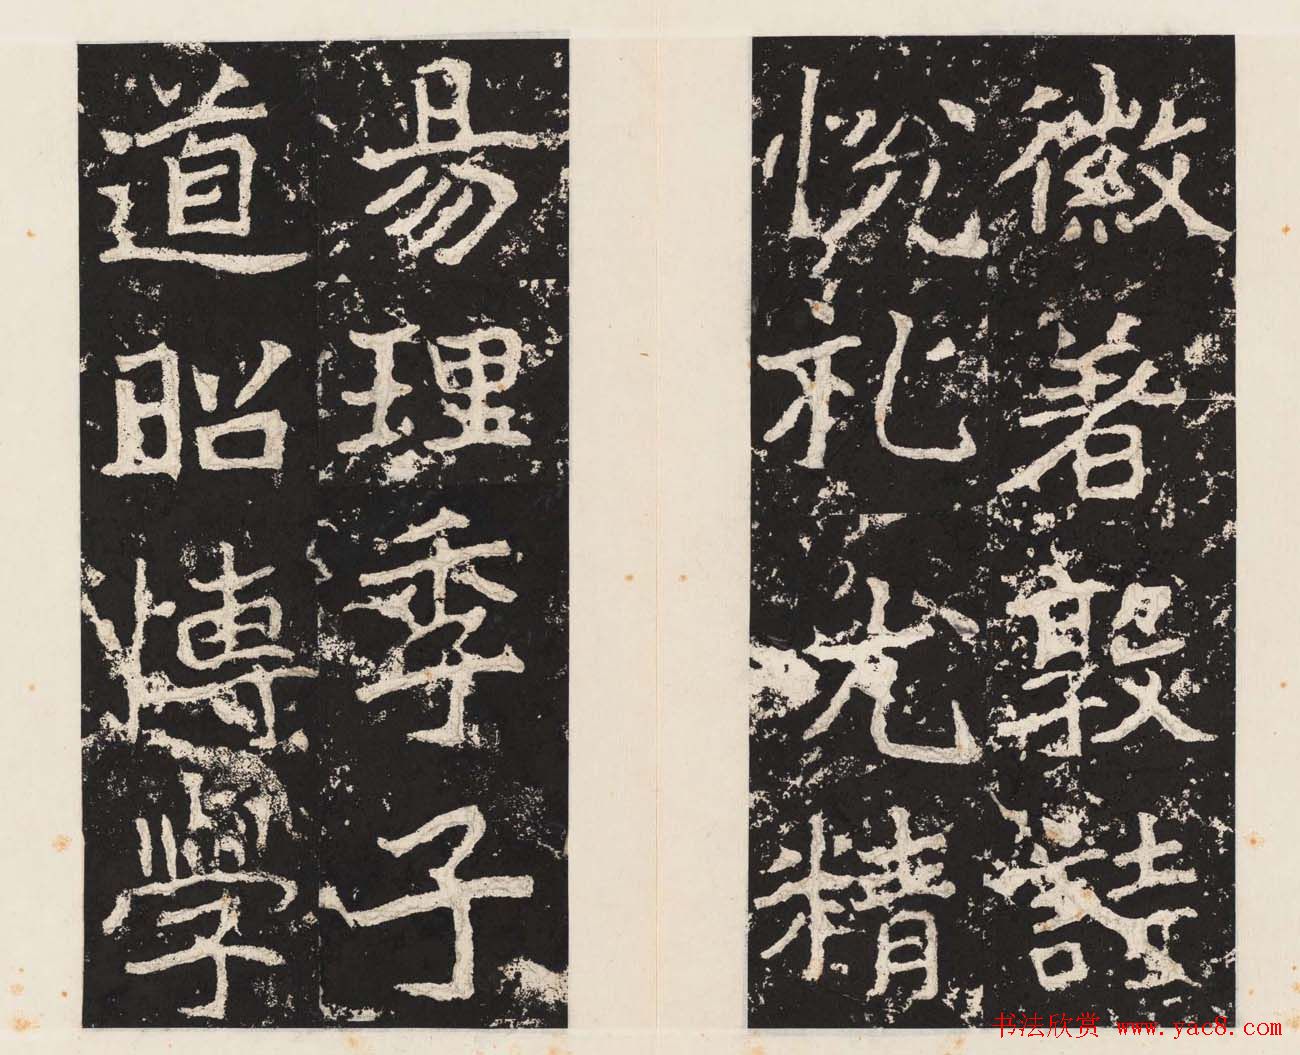 徽著敦詩
悅礼尤精
易理季子
道昭愽学
书法欣赏 www.yac8.com